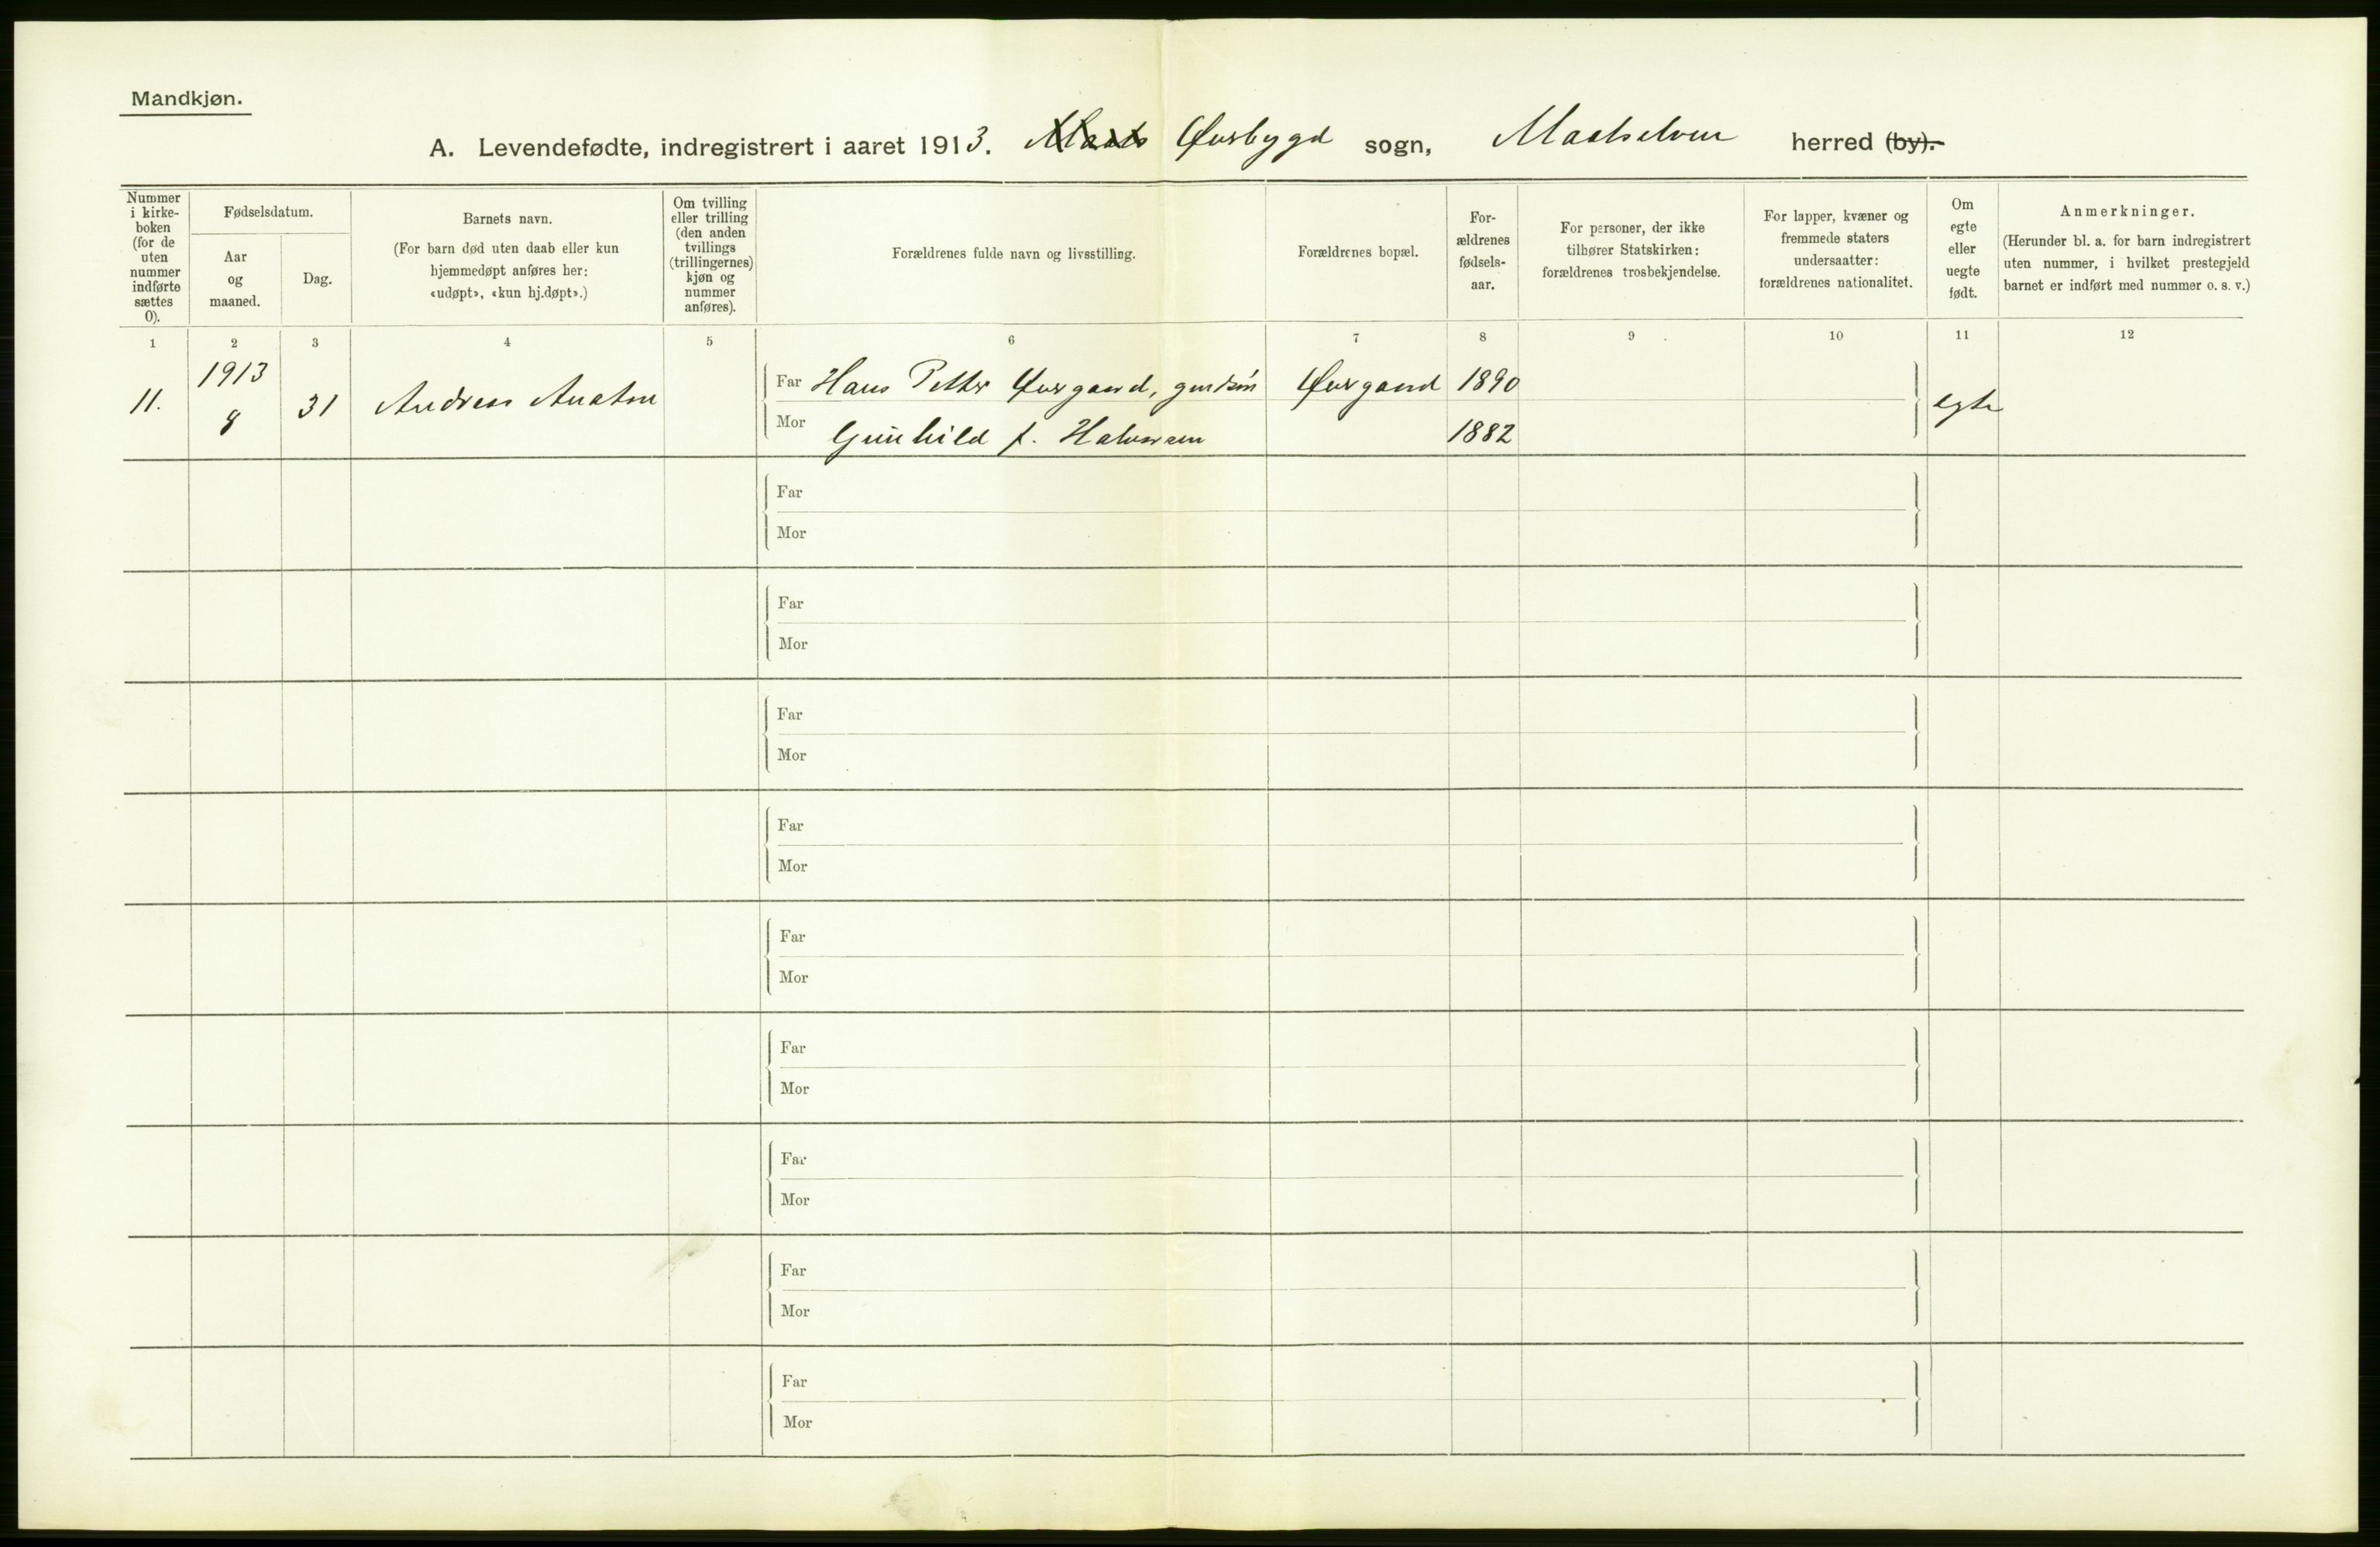 Mandkjøn.
A. Levendefødte, indregistrert i aaret 1913. Øverbygd sogn, Maalselven herred (by).
Nummer i kirke-boken (for de uten nummer indførte sættes 0).
Fødselsdatum.
Aar og maaned.
Dag.
Barnets navn.
(For barn død uten daab eller kun hjemmedøpt anføres her: «udøpt», «kun hj.døpt».)
Om tvilling eller trilling (den anden tvillings (trillingernes) kjøn og nummer anføres).
Forældrenes fulde navn og livsstilling.
Forældrenes bopæl.
For-ældrenes fødsels-aar.
For personer, der ikke tilhører Statskirken: forældrenes trosbekjendelse.
For lapper, kvæner og fremmede staters undersaatter: forældrenes nationalitet.
Om egte eller uegte født.
Anmerkninger.
(Herunder bl. a. for barn indregistrert uten nummer, i hvilket prestegjeld barnet er indført med nummer o. s. v.)
1 2 3 4 5 6 7 8 9 10 11 12
11. 1913 8 31 Andreas Far Hans Petter Øvergaard, Øvergaard 1890 egte
Mor Gunhild f. Halvorsen 1882
Far
Mor
Far
Mor
Far
Mor
Far
Mor
Far
Mor
Far
Mor
Far
Mor
Far
Mor
Far
Mor